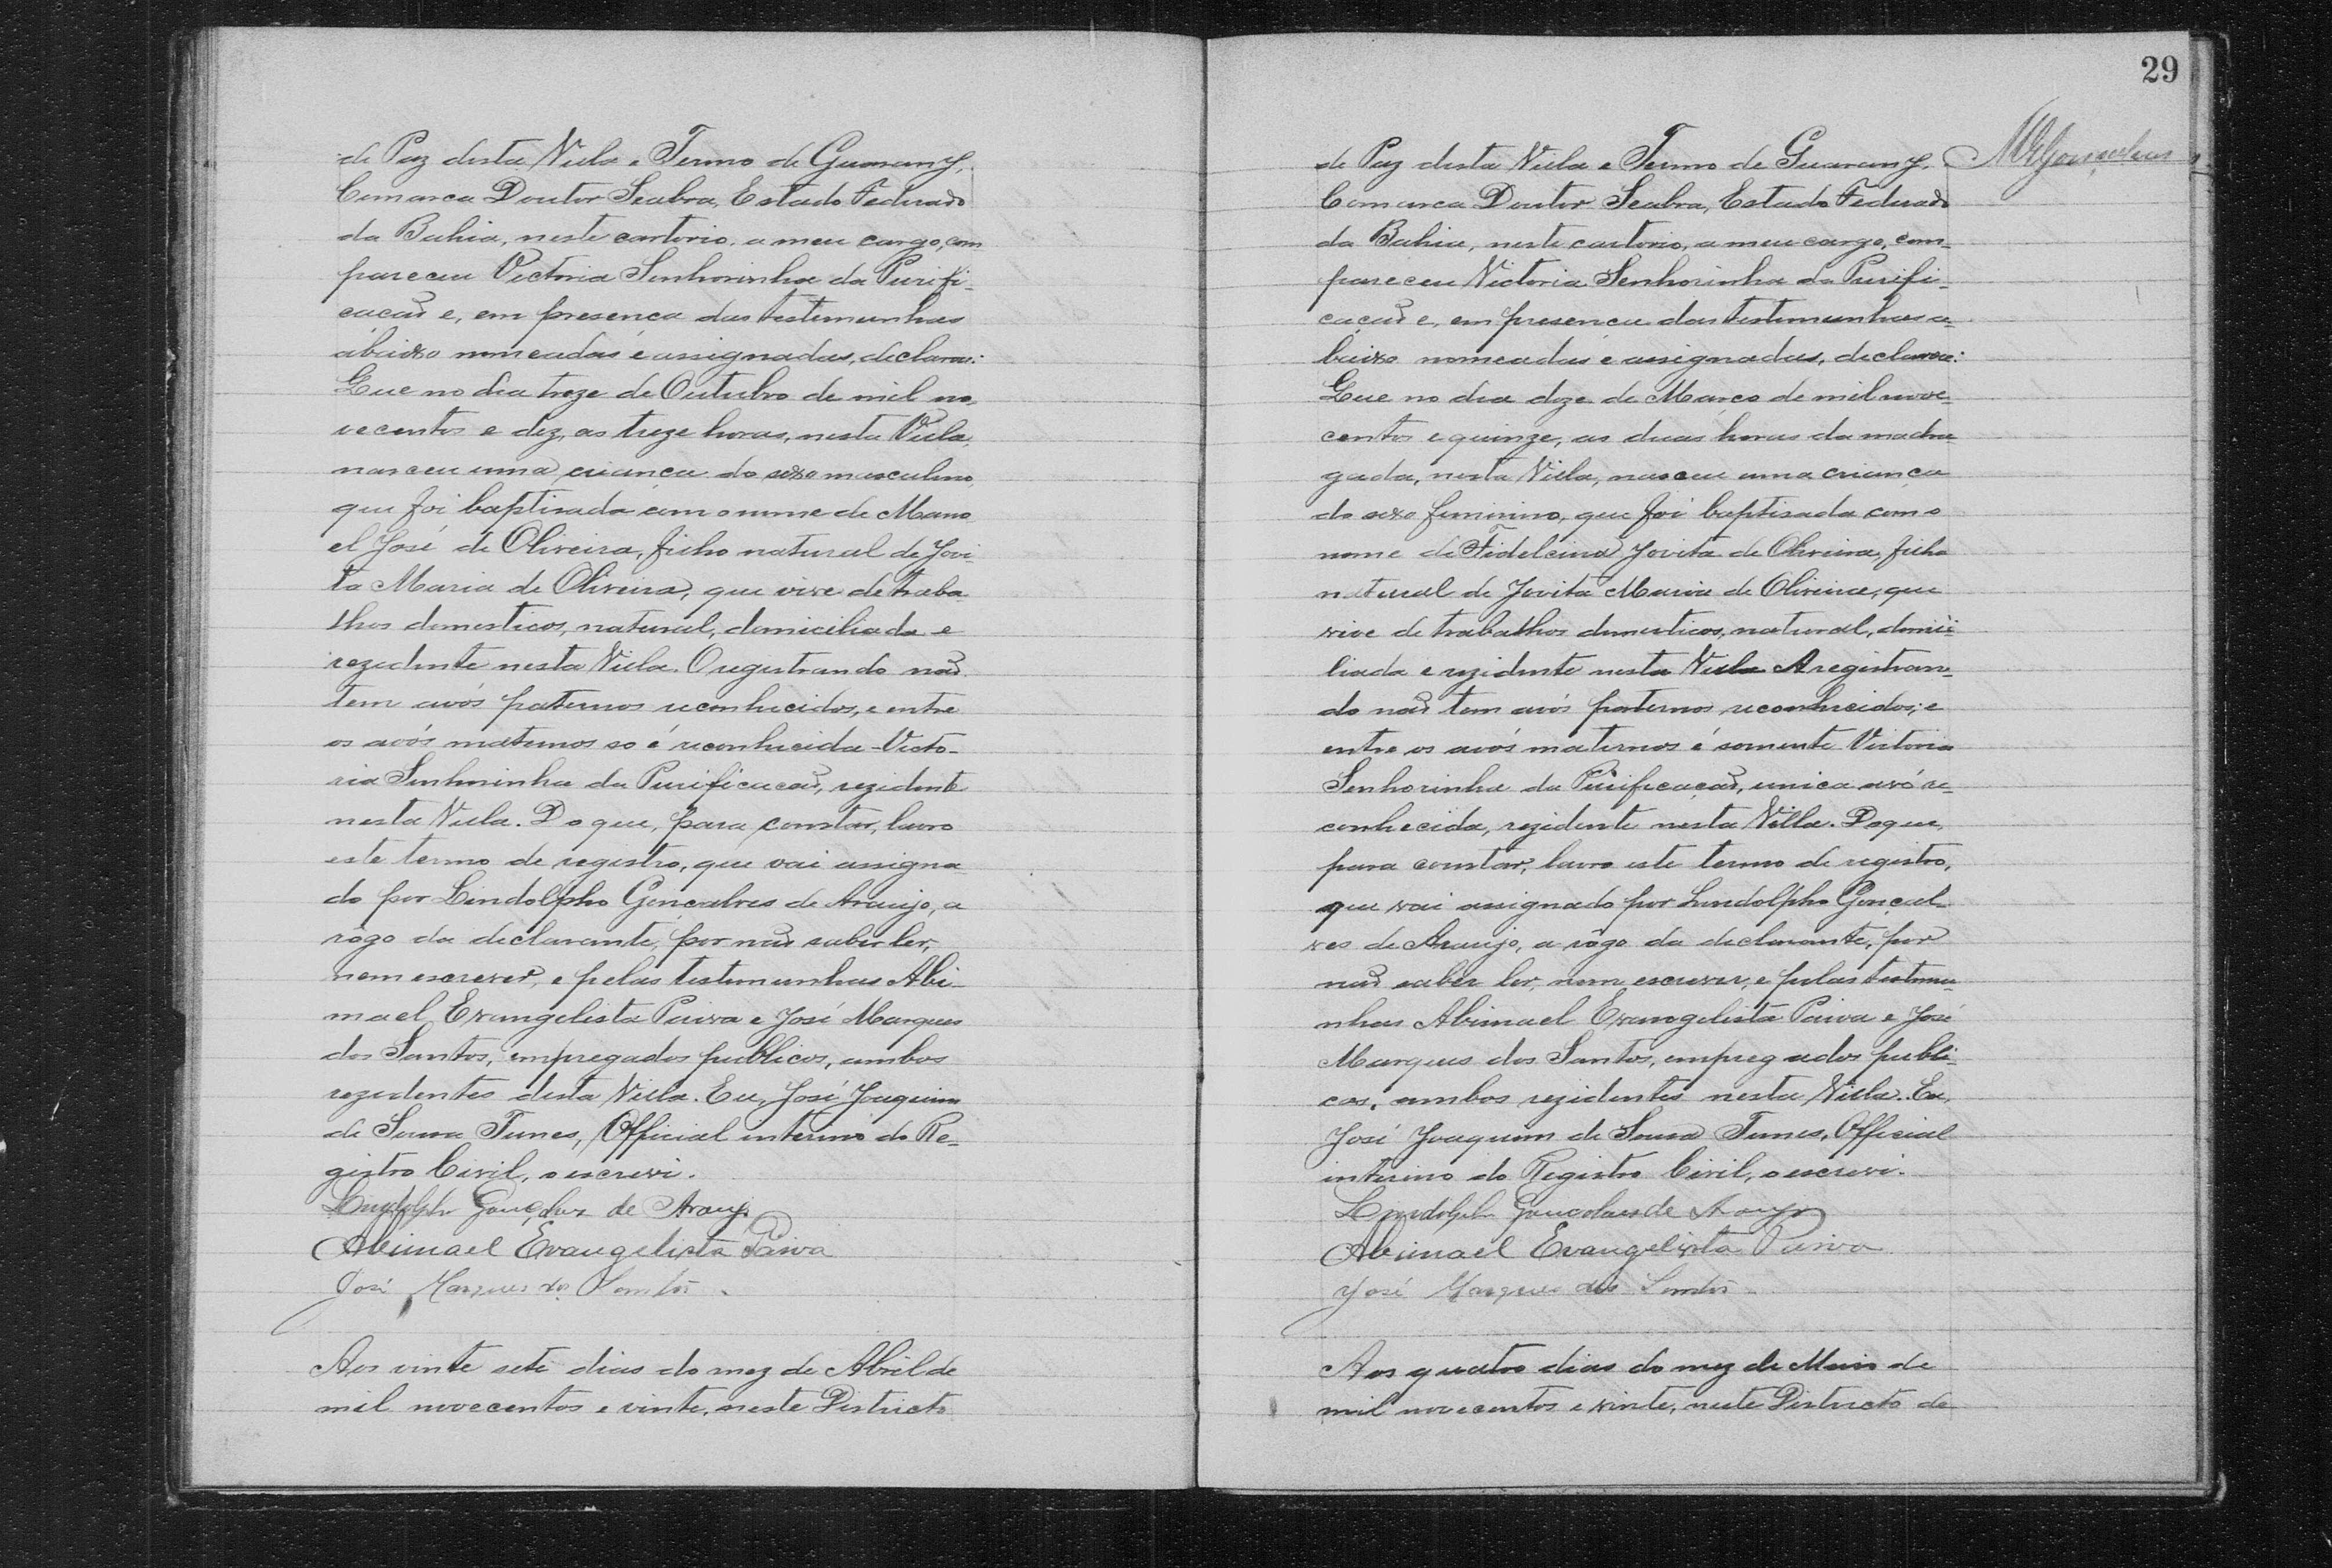 de Paz desta Villa e Termo de Guarany,
Comarca Doutor Seabra, Estado Federado
da Bahia, neste cartorio, a meu cargo, com
pareceu Victoria Senhorinha da Purifi-
cacão e, em presença das testemunhas
abaixo nomeadas e assignadas, declarou:
Que no dia treze de Outubro de mil no-
vecentos e dez, as treze horas, nesta Villa,
nasceu uma criança do sexo masculino
que foi baptisada com o nome de Mano
el José de Oliveira, filho natural de Jovi-
ta Maria de Oliveira, que vive de traba-
lhos domesticos, natural, domiciliada e
rezidente nesta Villa. O registrando não
tem avós paternos reconhecidos, e entre
os avós maternos so é reconhecida - Victo-
ria Senhorinha da Purificacão, rezidente
nesta Villa. Do que, para constar, lavro
este termo de registro, que vai assigna
do por Lindolpho Goncalves de Araujo, a
rôgo da declarante, por não saber ler,
nem escrever, e pelas testemunhas Abi-
mael Evangelista Paiva e José Marques
dos Santos, empregados publicos, ambos
rezidentes desta Villa. Eu, José Joaquim
de Sousa Tunes, Official interino do Re-
gistro Civil, o escrevi.
Lindolpho Gonçalves de Araujo
Abimael Evangelista Paiva
José Marques dos Santos.
Aos vinte sete dias do mez de Abril de
mil novecentos e vinte, neste Districto
29
de Paz desta Villa e Termo de Guarany,
Comarca Doutor Seabra, Estado Federado
da Bahia, neste cartorio, a meu cargo, com-
pareceu Victoria Senhorinha da Purifi-
cação e, em presença das testemunhas a-
baixo nomeadas e assignadas, declarou:
Que no dia doze de Março de mil nove-
centos e quinze, as duas horas da madru-
gada, nesta Villa, nasceu uma criança
do sexo feminino, que foi baptisada com o
nome de Fidelcina Jovita de Oliveira, filha
natural de Jovita Maria de Oliveira, que
vive de trabalhos domesticos, natural, domici-
liada e rezidente nesta Villa A registran-
do não tem avós paternos reconhecidos; e
entre os avós maternos é somente Victoria
Senhorinha da Purificação, unica avó re-
conhecida, rezidente nesta Villa. Do que,
para constar, lavro este termo de registro,
que vai assignado por Lindolpho Gonçal-
ves de Araujo, a rôgo da declarante, por
não saber ler, nem escrever, e pelas testemu-
nhas Abimael Evangelista Paiva e José
Marques dos Santos, empregados publi-
cos, ambos rezidentes nesta Villa. Eu,
José Joaquim de Sousa Tunes, Official
interino do Registro Civil, o escrevi.
Lindolpho Goncalves de Araujo
Abimael Evangelista Paiva
José Marques dos Santos
Aos quatro dias do mez de Maio de
mil novecentos e vinte, neste Districto de